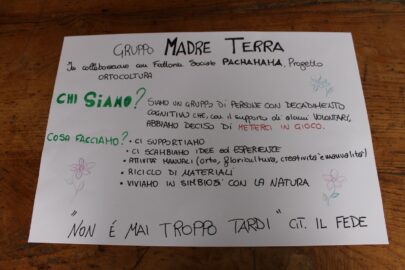 GRUPPO MADRE TERRA
In collaborazione con Fattoria Sociale PACHAMAMA, Progetto
ORTOCOLTURA
CHI SIAMO? SIAMO UN GRUPPO DI PERSONE CON DECADIMENTO
COGNITIVO CHE, con il supporto di alcuni VOLONTARI,
ABBIAMO DECISO DI METTERCI IN GIOCO.
COSA FACCIAMO? • CI SUPPORTIAMO
• CI SCAMBIAMO IDEE ed ESPERIENZE
• ATTIVITÀ MANUALI (orto, floricultura, creatività e manualità)
• RICICLO DI MATERIALI
• VIVIAMO IN SIMBIOSI CON LA NATURA
"NON É MAI TROPPO TARDI" CIT. IL FEDE